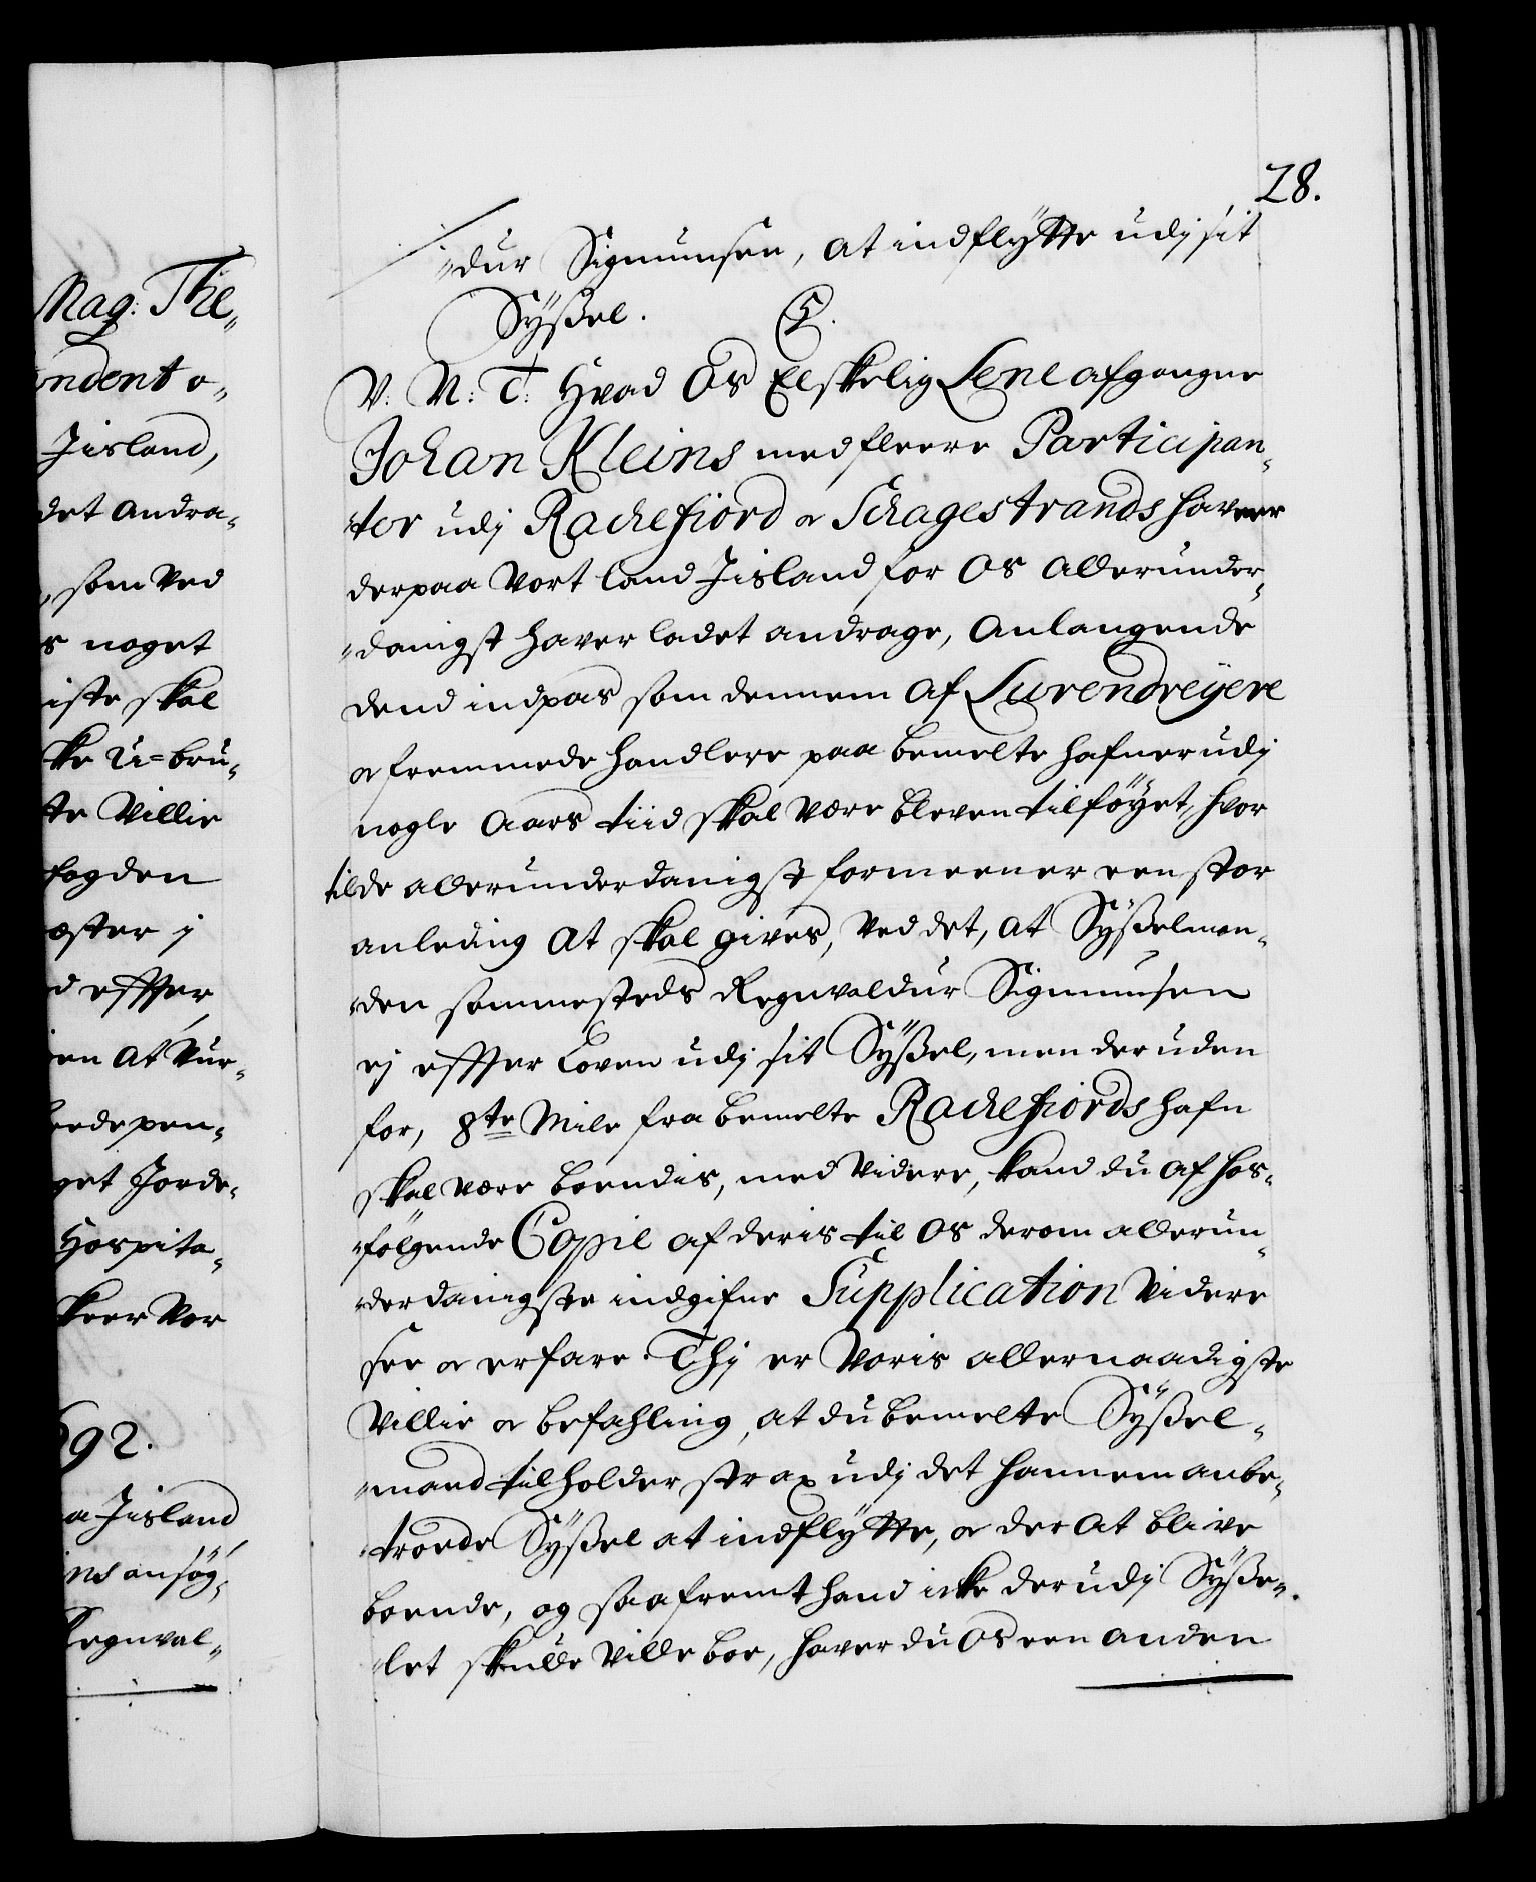 Mag: The„
ndent o„
Jisland,
det andra„
som ved
s noget
iste skal
ke u=bru„
te Villie
fogden
æster j
d effter
en at Vur„
get Jorde„
Hospita„
keer Vor
692.
a Jisland
ns ansøg„
Regnval„
28.
„dur Sigmunsen, at indflytte udj sit
Syßel. C5.
V: N: T: Hvad Os Elskelig Lene afgangne
Johan Kleins med fleere Participan„
„ter udj Rachefiord o Schagestrands havner
der paa Vort land Jisland for Os allerunder„
„danigst haver ladet andrage, Anlangende
dend indpas som dennem af Lurendreyere
o fremmede handlere paa bemelte hafner udj
nogle Aars tiid skal være bleven tilføyet, hvor
til de allerunderdanigst formeener een stor
anleding at skal gives, ved det, at Syßelman„
„den sammesteds Regnvaldur Sigmunsen
ej effter Loven udj sit Syßel, men der uden
for, 8te Mile fra bemelte Rachefiords hafn
skal være boendis, med videre, kand du af hos„
„følgende Copie af deris til Os derom allerun„
„derdanigste indgifne Supplication videre
see o erfare. Thj er Voris allernaadigste
Villie o befahling, at du bemelte Syßel„
„mand tilholder strax udj det hannem anbe„
„troede Syßel at indflytte, o der at blive
boende, og saafremt hand icke der udj Syße„
„let skulle ville boe, haver du Os een anden